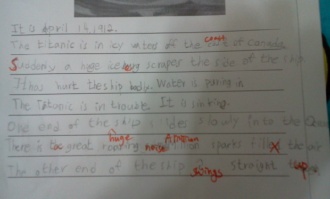 It is April 14, 1912.
The titanic is in icy of the coast of Canada.
Suddenly a huge iceberg scrapes the side of the ship
It has hurt the ship body. Water is pouring in.
The Titanic is in trouble. It is sinking.
One end of the ship slides slowly into the Ocean
There is great huge roaring noise A sparks fill the air
The other end of the ship swings straight up